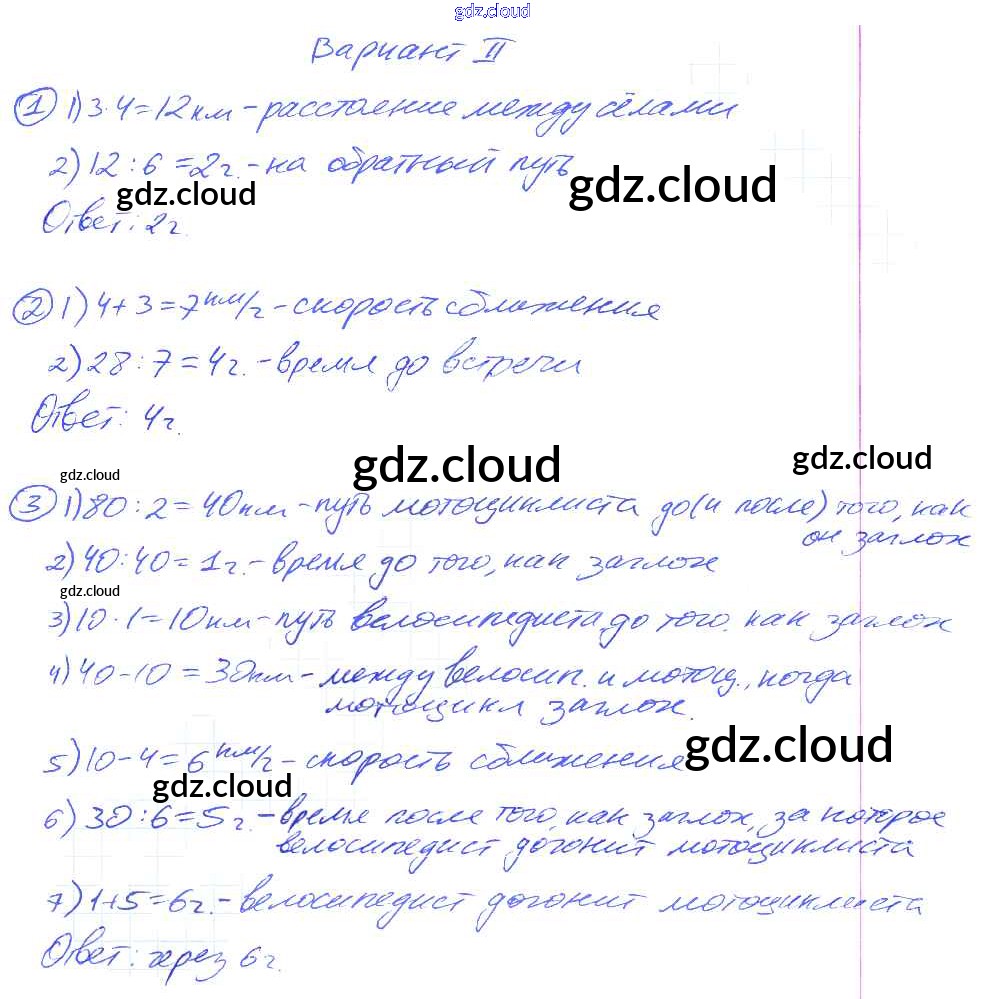 gdz.cloud
Вариант II
① 1) 3·4=12км-расстояние между сёлами
2) 12:6=2ч.-на обратный путь
gdz.cloud gdz.cloud
Ответ: 2ч.
② 1) 4+3=7км/ч-скорость сближения
2) 28:7=4ч.-время до встречи
Ответ: 4ч.
gdz.cloud gdz.cloud gdz.cloud
③ 1) 80:2=40км-путь мотоциклиста до(и после) того, как
он заглох
2) 40:40=1ч.-время до того, как заглох
gdz.cloud
3) 10·1=10км-путь велосипедиста до того, как заглох
4) 40-10=30км-между велосип. и мотоц., когда
мотоцикл заглох.
gdz.cloud
5) 10-4=6км/ч-скорость сближения
gdz.cloud
6) 30:6=5ч.-время после того, как заглох, за которое
велосипедист догонит мотоциклиста
7) 1+5=6ч.-велосипедист догонит мотоциклиста
Ответ: через 6ч.